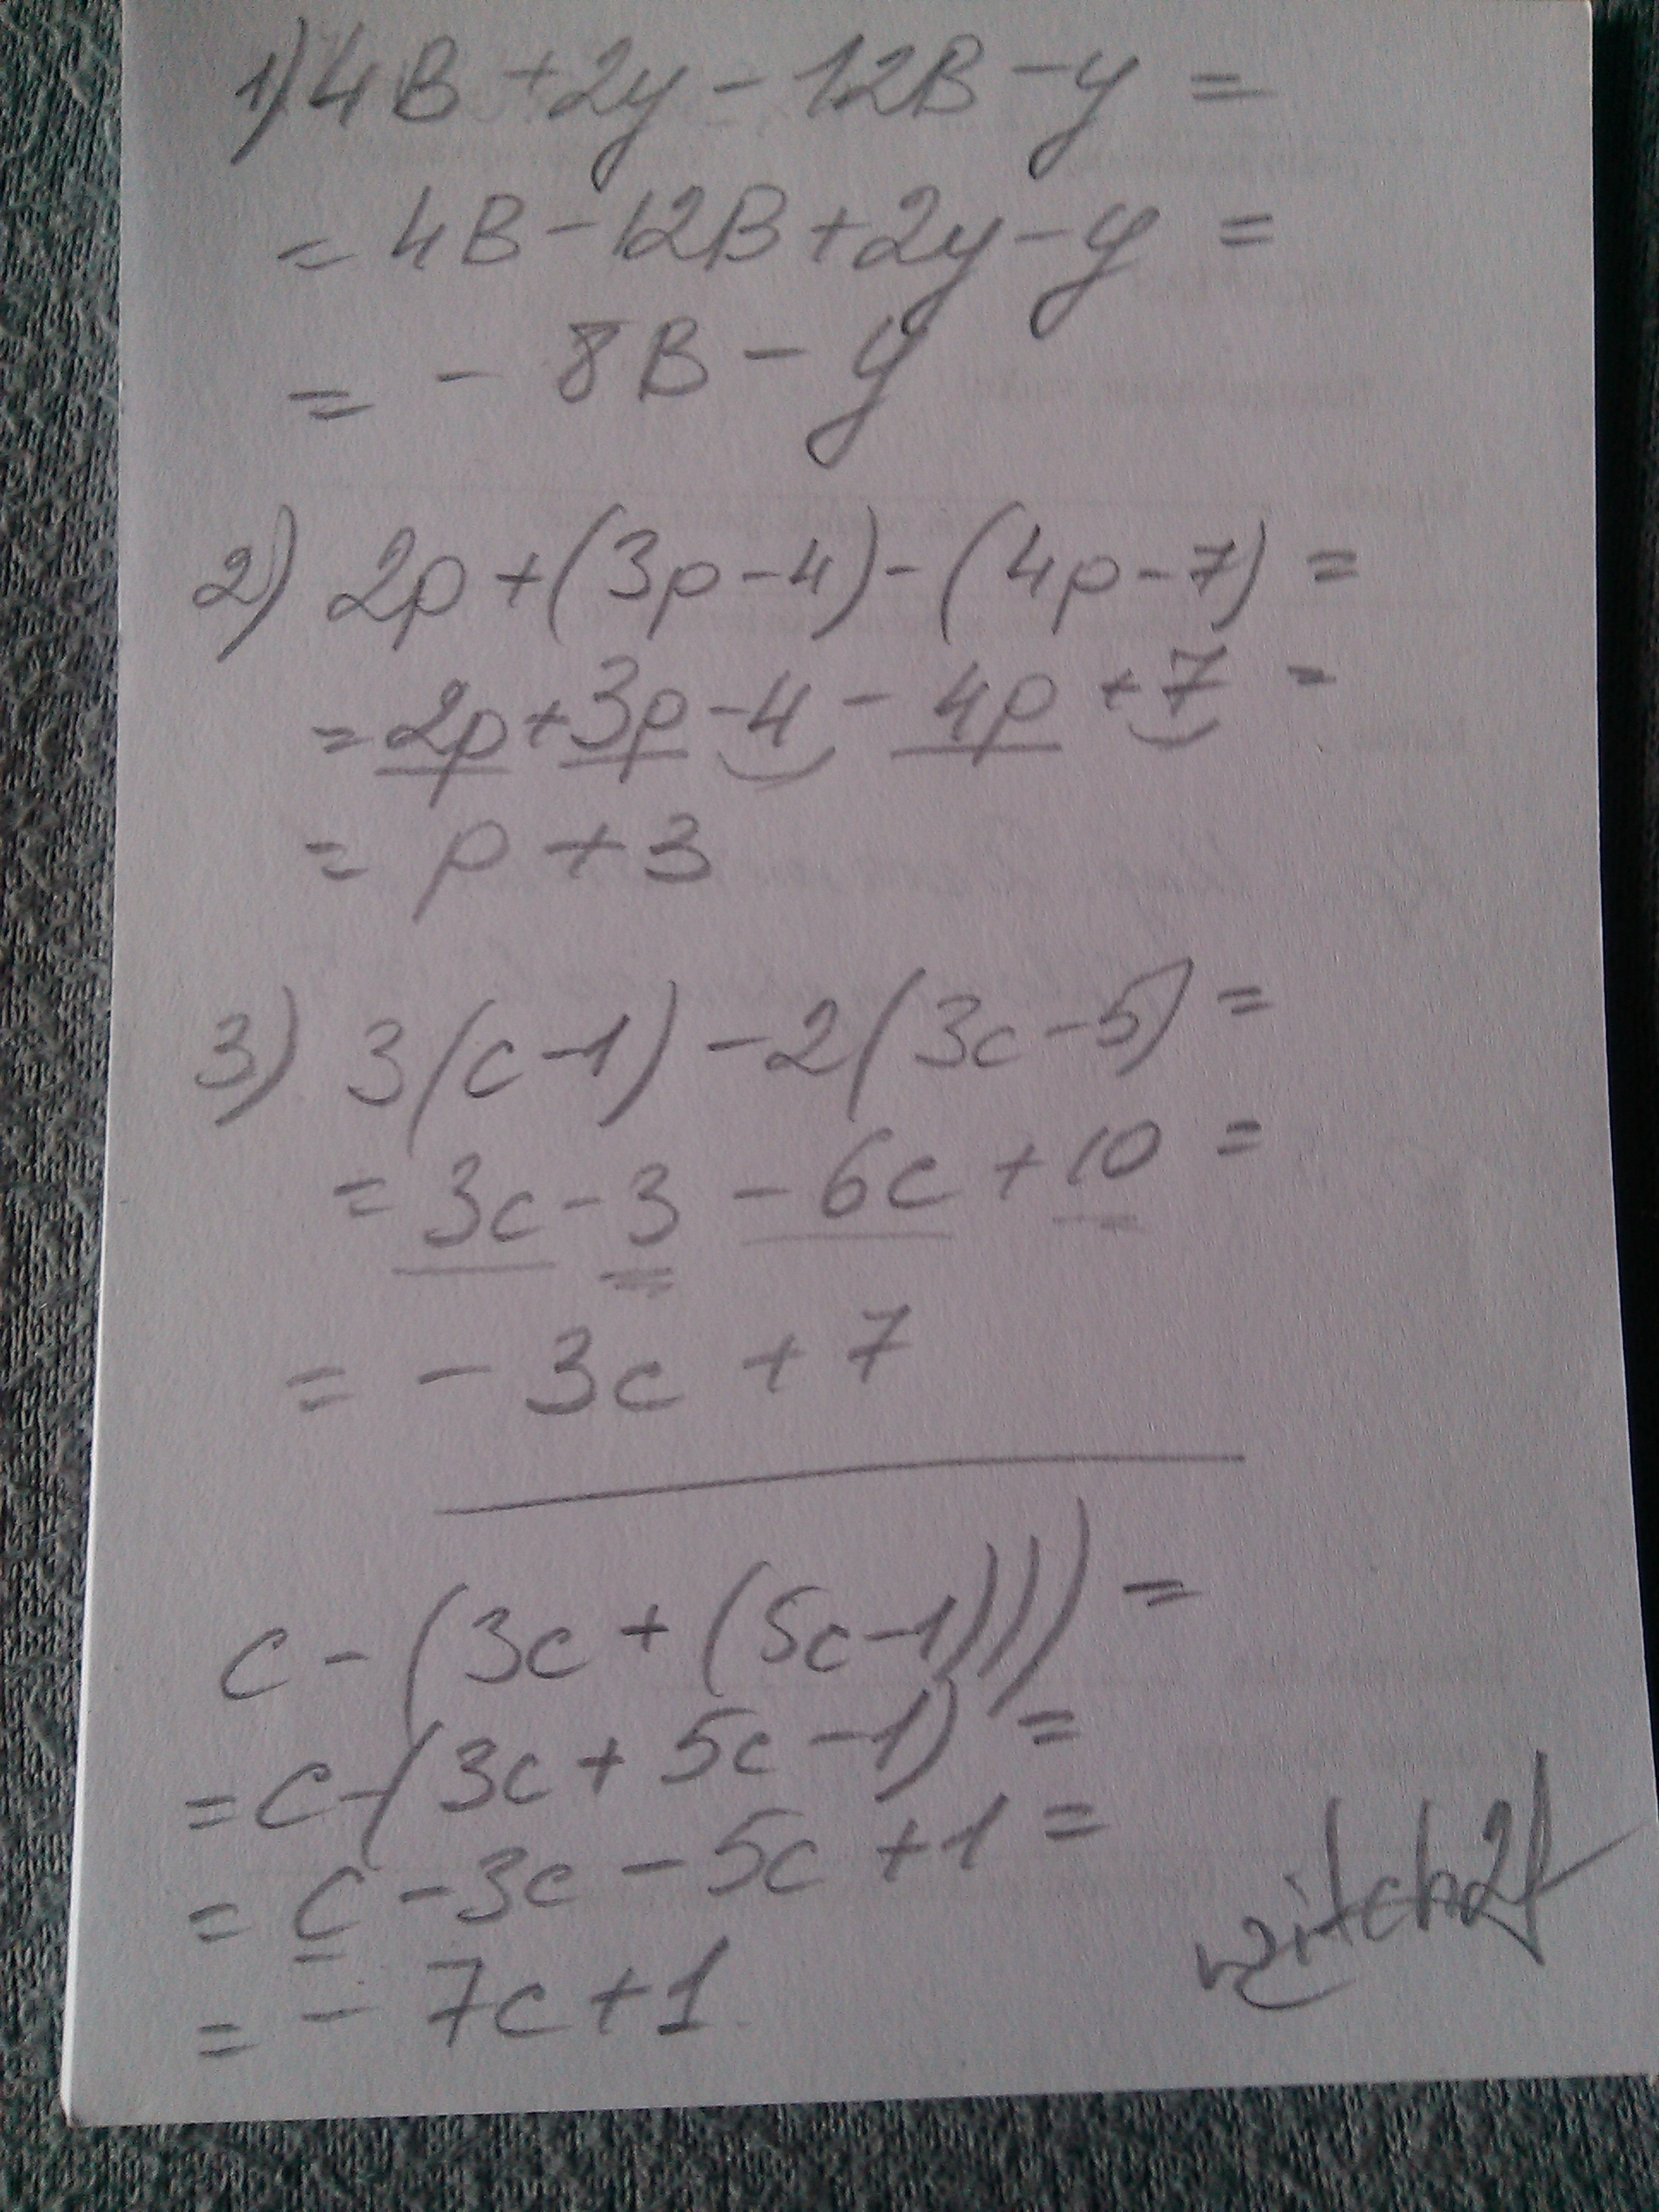 1) 4B + 2y - 12B - y =
= 4B - 12B + 2y - y =
= - 8B - y
2) 2p + (3p - 4) - (4p - 7) =
= 2p + 3p - 4 - 4p + 7 =
= p + 3
3) 3(c - 1) - 2(3c - 5) =
= 3c - 3 - 6c + 10 =
= - 3c + 7
c - (3c + (5c - 1))) =
= c - (3c + 5c - 1) =
= c - 3c - 5c + 1 =
= - 7c + 1